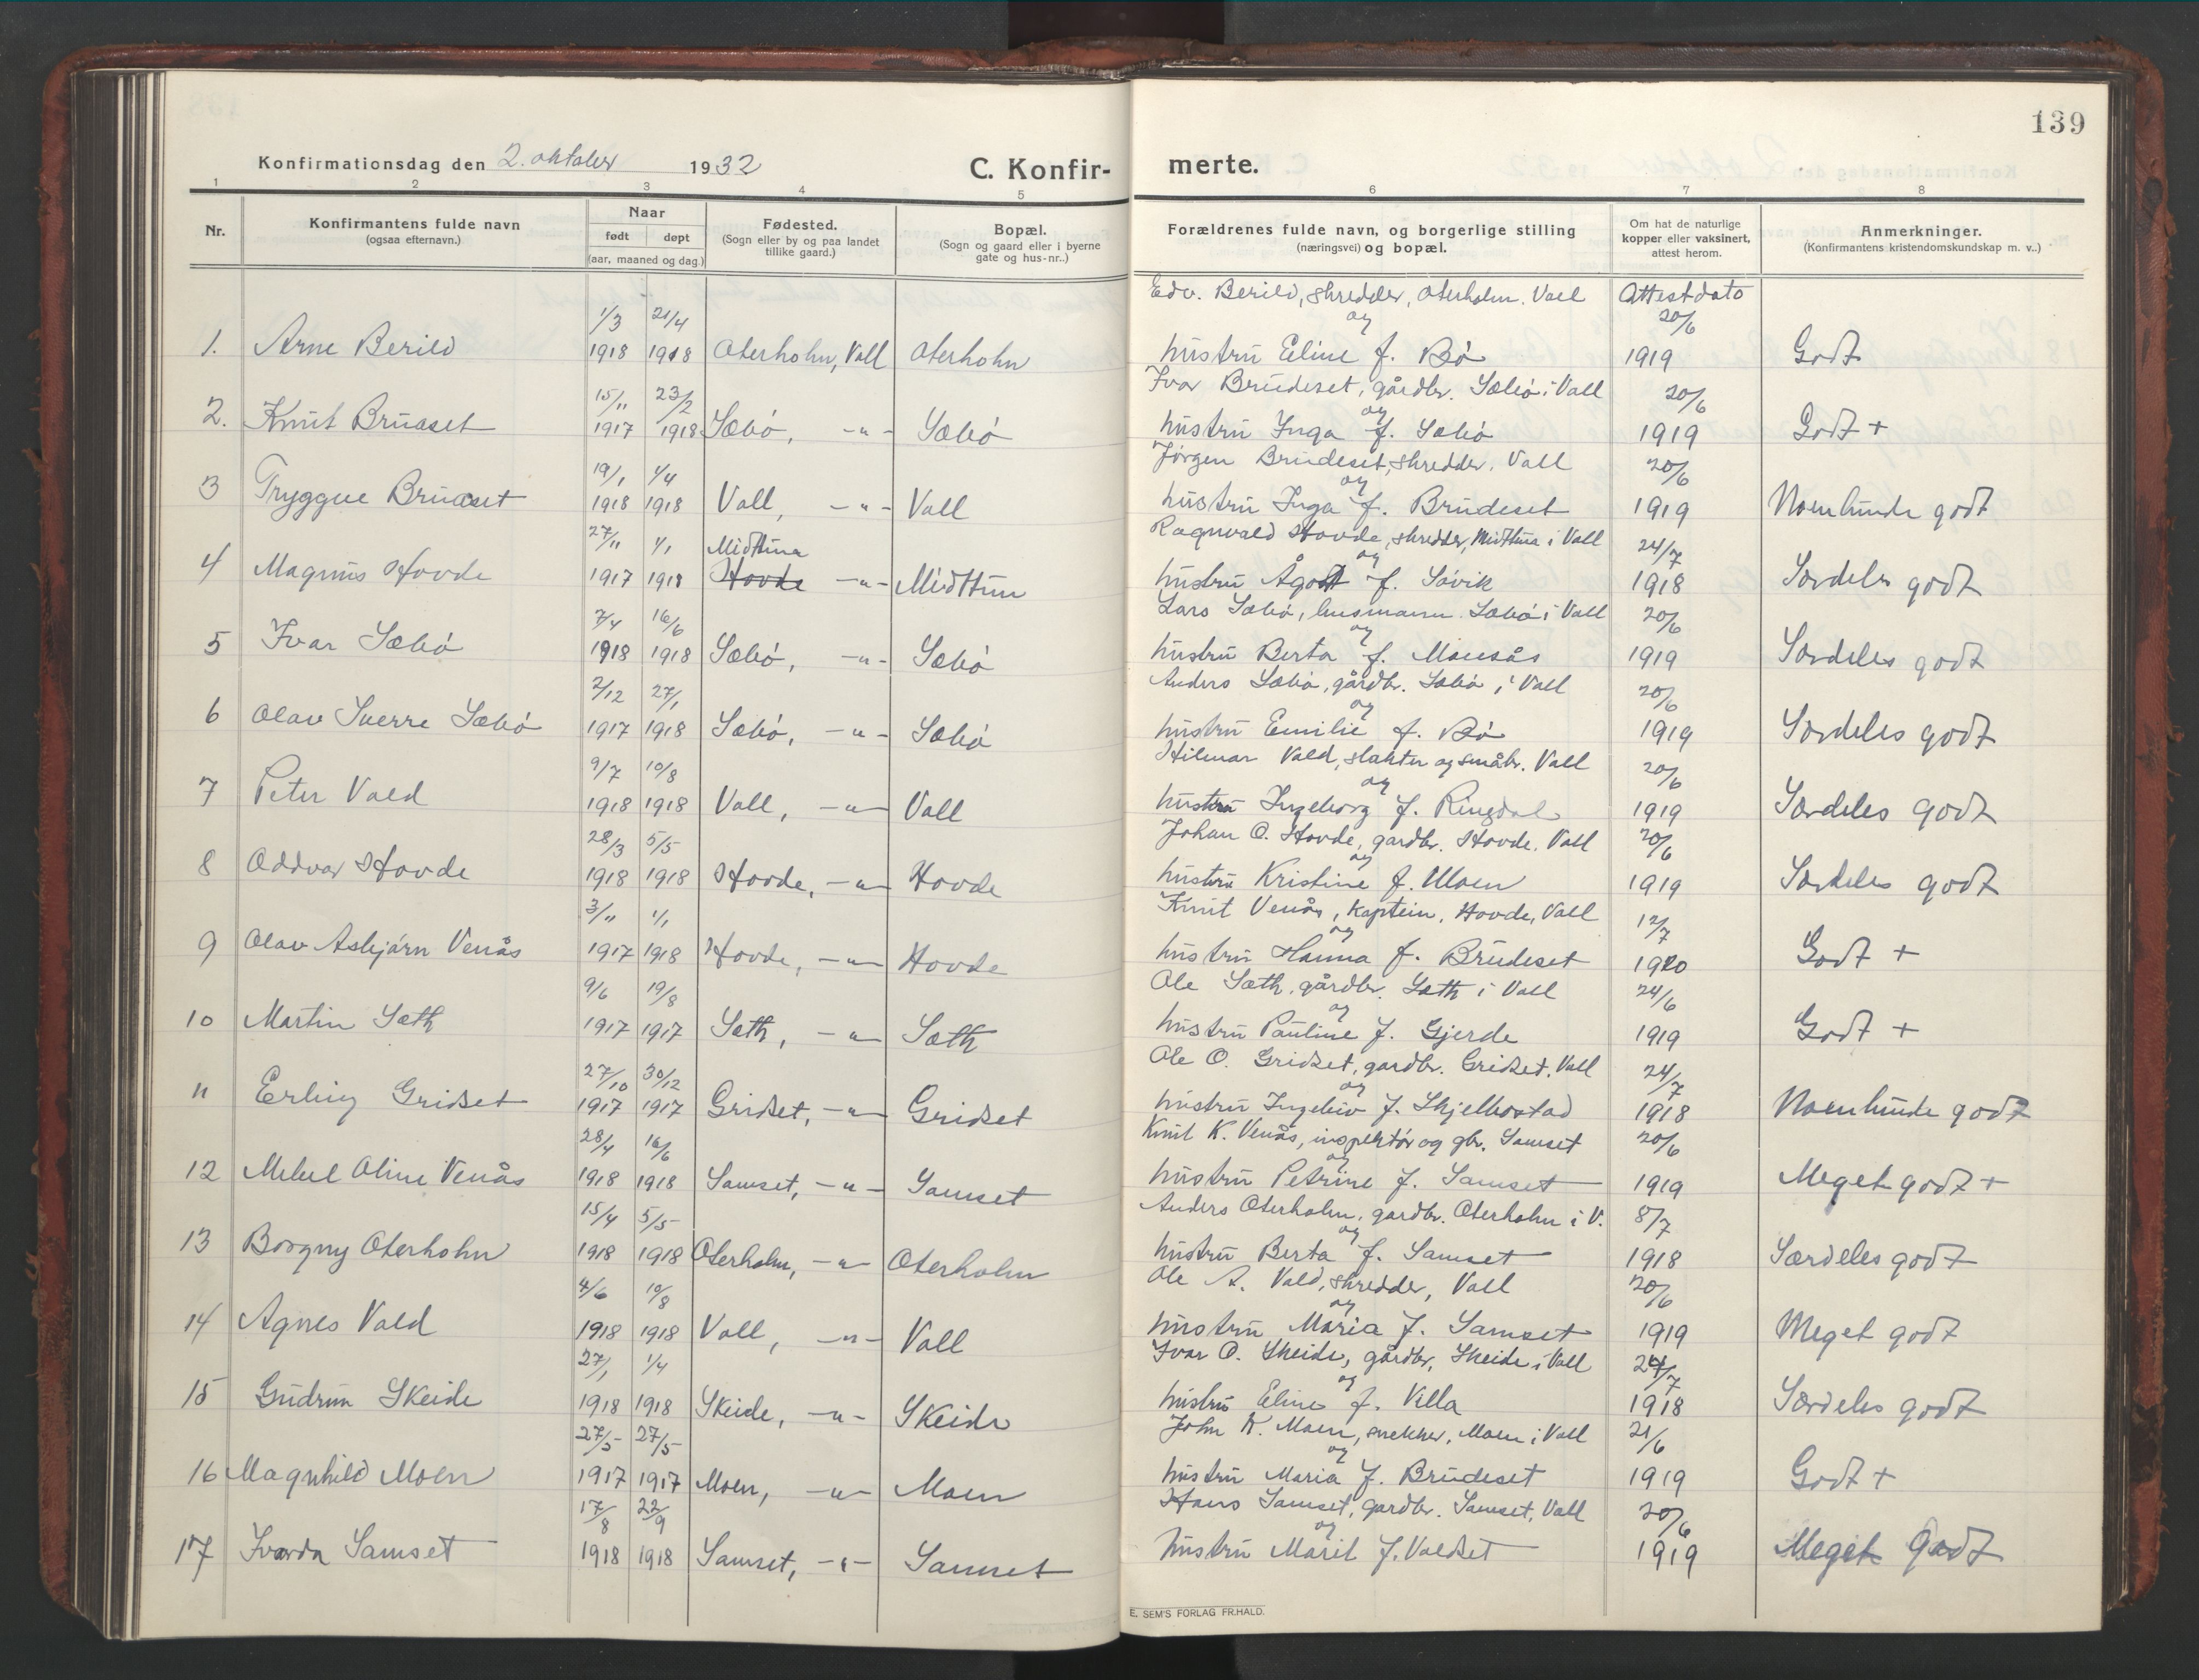 139
Konfirmationsdag den 2. oktober 1932
C. Konfir-
merte.
1 2 3 4 5 6 7 8
Nr.
Konfirmantens fulde navn
(ogsaa efternavn.)
Naar
født døpt
(aar, maaned og dag.)
Fødested.
(Sogn eller by og paa landet
tillike gaard.)
Bopæl.
(Sogn og gaard eller i byerne
gate og hus-nr..)
Forældrenes fulde navn, og borgerlige stilling
(næringsvei) og bopæl.
Om hat de naturlige
kopper eller vaksinert,
attest herom.
Anmerkninger.
(Konfirmantens kristendomskundskap m. v..)
Edv. Berild, skredder, Oterholm, Vall Attestdato
1/3 21/4 og 20/6
1. Arne Berild 1918 1918 Oterholm, Vall Oterholm hustru Eline f. Bø 1919 Godt
Ivar Brudeset, gårdbr. Sæbø i Vall
15/11 23/2 og 20/6
2. Knut Brudeset 1917 1918 Sæbø, -"- Sæbø hustru Inga f. Sæbø 1919 Godt +
Jørgen Brudeset, skredder, Vall
19/1 1/4 og 20/6
3 Tryggve Brudeset 1918 1918 Vall, -"- Vall hustru Inga f. Brudeset 1919 Noenlunde godt
Ragnvald Hovde, skredder, Midttun i Vall
27/11 1/1 Midttun og 24/7
4 Magnus Hovde 1917 1918 Hovde -"- Midttun hustru Ågot f. Søvik 1918 Særdeles godt
Lars Sæbø, husmann Sæbø i Vall
7/4 16/6 og 20/6
5 Ivar Sæbø 1918 1918 Sæbø, -"- Sæbø hustru Berta f. Monsås 1919 Særdeles godt
Anders Sæbø, gårdbr. Sæbø i Vall
2/12 27/1 og 20/6
6 Olav Sverre Sæbø 1917 1918 Sæbø, -"- Sæbø hustru Emilie f. Bø 1919 Særdeles godt
Hilmar Vald, slakter og småbr. Vall
9/7 10/8 og 20/6
7 Peter Vald 1918 1918 Vall, -"- Vall hustru Ingeborg f. Ringdal 1919 Særdeles godt
Johan O. Hovde, gardbr. Hovde, Vall
28/3 5/5 og 20/6
8 Oddvar Hovde 1918 1918 Hovde, -"- Hovde hustru Kristine f. Moen 1919 Særdeles godt
Knut Venås, kaptein, Hovde, Vall
3/11 1/1 og 12/7
9 Olav Asbjørn Venås 1917 1918 Hovde, -"- Hovde hustru Hanna f. Brudeset 1920 Godt +
Ole Sæth, gårdbr. Sæth i Vall
9/6 19/8 og 24/6
10 Martin Sæth 1917 1917 Sæth, -"- Sæth hustru Pauline f. Gjerde 1919 Godt +
Ole O. Gridset, gardbr. Gridset, Vall
27/10 30/12 og 24/7
11 Erling Gridset 1917 1917 Gridset, -"- Gridset hustru Ingebio f. Skjelbostad 1918 Noenlunde godt
Knut K. Venås, inspektør og gbr. Samset
28/4 16/6 og 20/6
12 Oline Venås 1918 1918 Samset, -"- Samset hustru Petrine f. Samset 1919 Meget godt +
Anders Oterholm, gardbr. Oterholm i V.
15/4 5/5 og 8/7
13 Borgny Oterholm 1918 1918 Oterholm, -"- Oterholm hustru Berta f. Samset 1918 Særdeles godt
Ole A. Vald, skredder, Vall
4/6 10/8 og 20/6
14 Agnes Vald 1918 1918 Vall, -"- Vall hustru Maria f. Samset 1919 Meget godt
Ivar O. Skeide, gårdbr, Skeide i Vall
27/1 1/4 og 24/7
15 Gudrun Skeide 1918 1918 Skeide, -"- Skeide hustru Eline f. Villa 1918 Særdeles godt
John K. Moen, snekker, Moen i Vall
27/5 27/5 og 21/6
16 Magnhild Moen 1917 1917 Moen, -"- Moen hustru Maria f. Brudeset 1919 Godt +
Hans Samset, gardbr. Samset, Vall
17/8 22/9 og 20/6
17 Ivarda Samset 1918 1918 Samset, -"- Samset hustru Marit f. Valdset 1919 Meget godt
E. SEM'S FORLAG FR.HALD.